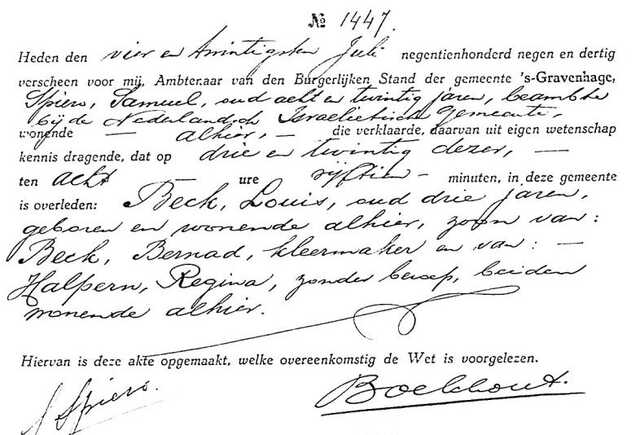 № 1447.
Heden den vier en twintigsten Juli negentienhonderd negen en dertig
verscheen voor mij, Ambtenaar van den Burgerlijken Stand der gemeente 's-Gravenhage,
Spiero, Samuel, oud acht en twintig jaren, beambte
bij de Nederlandsch Israelietische Gemeente,
wonende — alhier, — die verklaarde, daarvan uit eigen wetenschap
kennis dragende, dat op drie en twintig dezer, —
ten acht ure vijftien — minuten, in deze gemeente
is overleden: Beck, Louis, oud drie jaren,
geboren en wonende alhier, zoon van:
Beck, Bernad, kleermaker en van: —
Halpern, Regina, zonder beroep, beiden
wonende alhier.
Hiervan is deze akte opgemaakt, welke overeenkomstig de Wet is voorgelezen.
S Spiero. Boekhout.